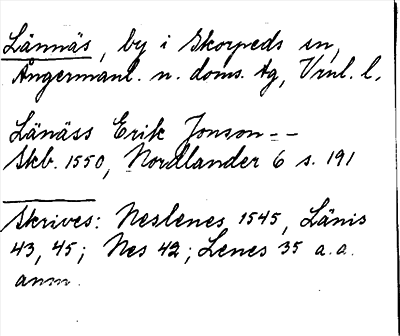 Lännäs, by i Skorpeds sn,
Ångermanl. n. doms. tg, Vrnl. l.
Länäss Erik Jonson--
Skb. 1550, Nordlander 6 s. 191
Skrives: Neslenes 1545, Länis
43, 45; Nes 42; Lenes 35 a.a.
anm.